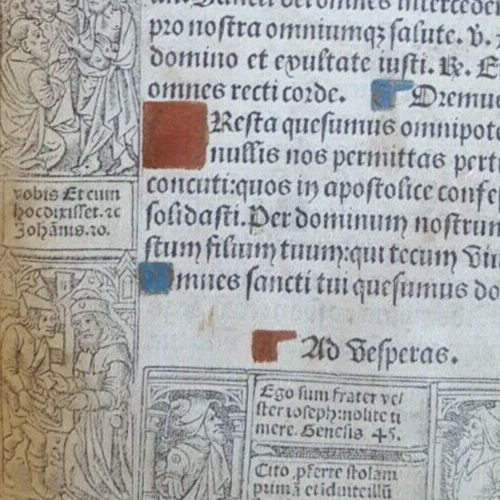 pro nostra omniumqꝫ salute. v.
domino et exultate iusti. ℞. E
omnes recti corde. Oremus
Resta quesumus omnipote
nullis nos permittas pert
concuti:quos in apostolice confe
solidasti. Per dominum nostrum
stum filium tuum:qui tecum Viu
mnes sancti tui quesumus do
Ad Vesperas.
vobis Et cum
hoc dixisset. ⁊c
Johānis. 20.
Ego sum frater ve/
ster ioseph:nolite ti
mere. Genesis 45.
Cito ꝓferte stolam